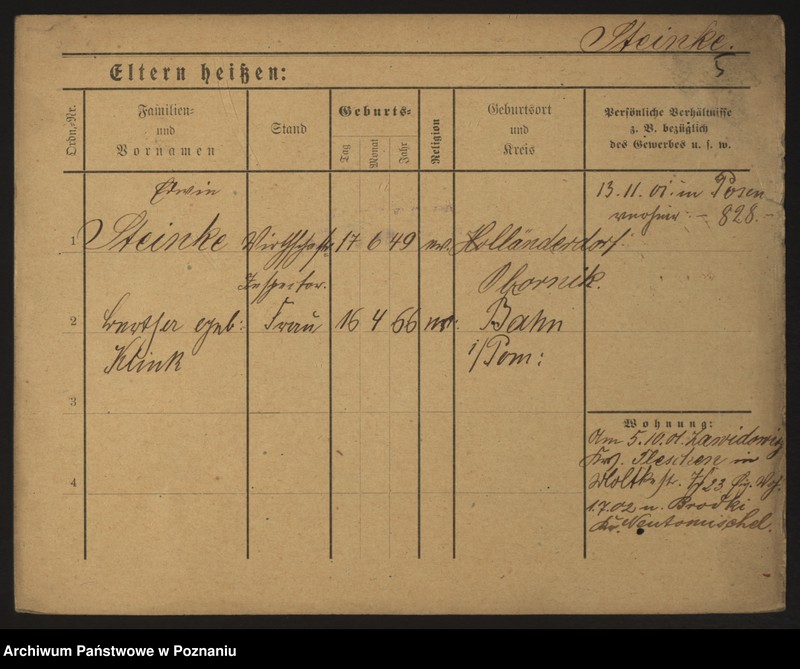 Steinke.
5
Eltern heißen:
Ordn.-Nr.
Familien-
und
Vornamen
Stand
Geburts-
Tag
Monat
Jahr
Religion
Geburtsort
und
Kreis
Persönliche Verhältnisse
z. B. bezüglich
des Gewerbes u. s. w.
Erwin
13.11.01. in Posen
- 828.-
1 Steinke Wirthschafts 17 6 49 ev. Holländerdorf
Inspector. Obornik.
2 Bertha geb: Frau 16 4 66 ev. Bahn
Klink i/Pom:
3
4
Wohnung:
Am 5.10.01. Zawidowitz
Krs. Pleschen in
Moltkestr. 23
1.7.02 n. Brodki
Kr. Neutomischel.
Archiwum Państwowe w Poznaniu